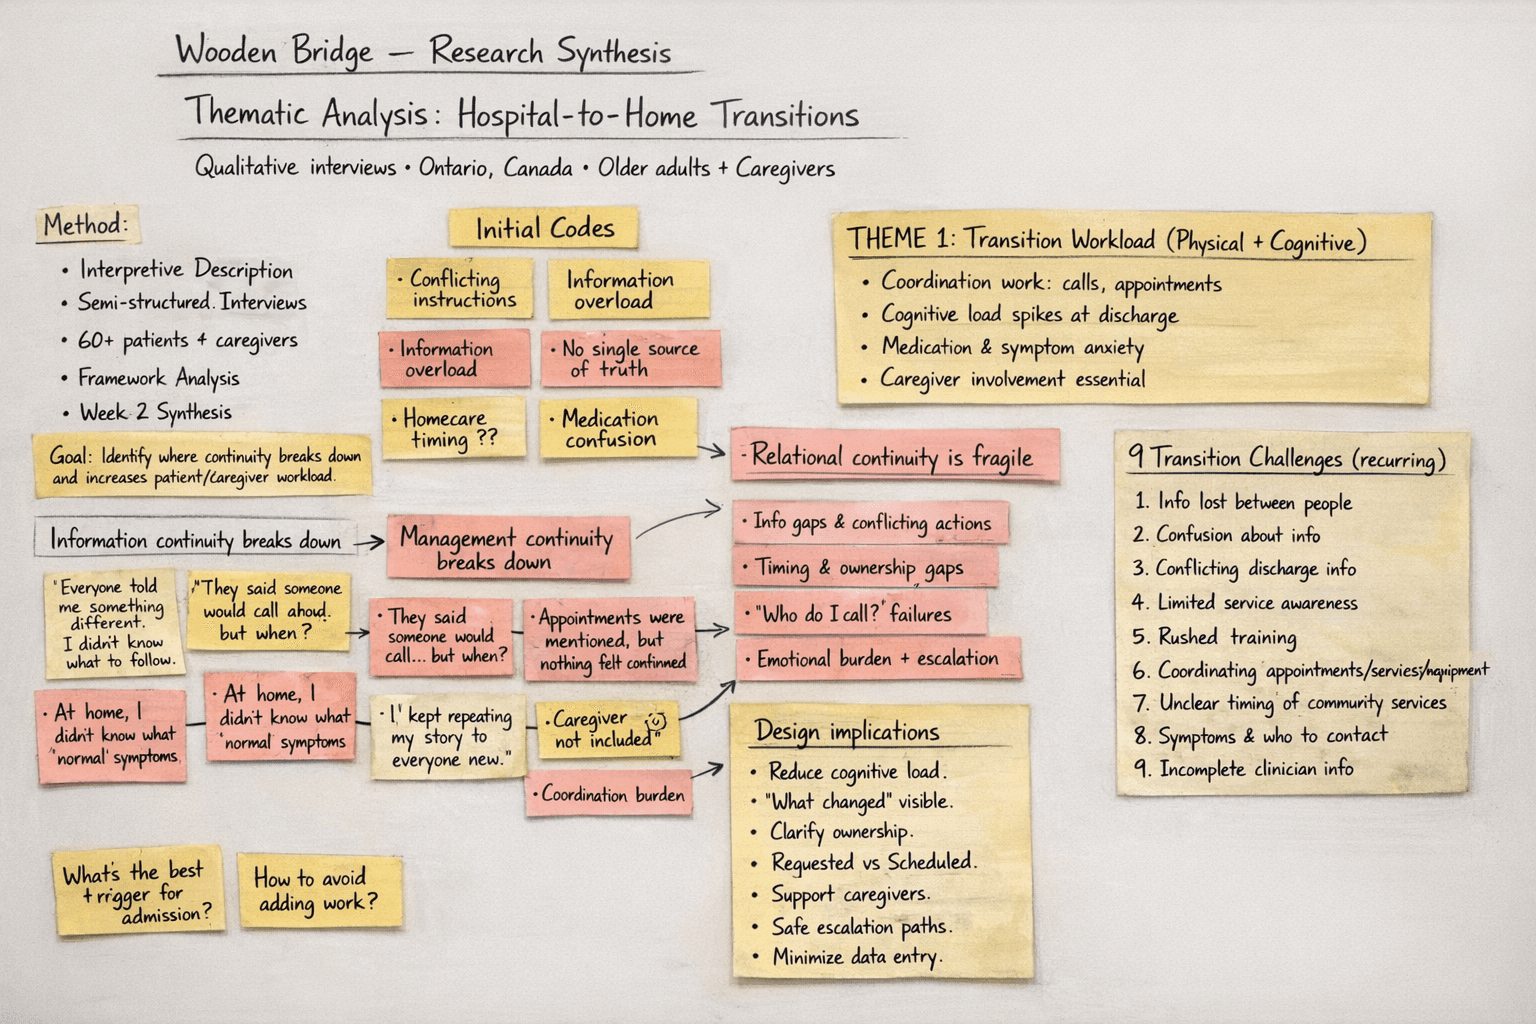 Wooden Bridge — Research Synthesis
Thematic Analysis: Hospital-to-Home Transitions
Qualitative interviews • Ontario, Canada • Older adults + Caregivers
Method:
• Interpretive Description
• Semi-structured. Interviews
• 60+ patients + caregivers
• Framework Analysis
• Week 2 Synthesis
Goal: Identify where continuity breaks down
and increases patient/caregiver workload.
Initial Codes
• Conflicting
instructions
Information
overload
• Information
overload
• No single source
of truth
• Homecare
timing ??
• Medication
confusion
Information continuity breaks down
Management continuity
breaks down
"Everyone told
me something
different.
I didn't know
what to follow.
"They said someone
would call
but when?
• They said
someone would
call... but when?
• Appointments were
mentioned, but
nothing felt
• At home, I
didn't know what
'normal' symptoms
• At home, I
didn't know what
'normal' symptoms
• I' kept repeating
my story to
everyone new."
• Caregiver
not included"
• Coordination burden
What's the best
trigger for
admission?
How to avoid
adding work?
THEME 1: Transition Workload (Physical + Cognitive)
• Coordination work: calls, appointments
• Cognitive load spikes at discharge
• Medication & symptom anxiety
• Caregiver involvement essential
- Relational continuity is fragile
• Info gaps & conflicting actions
• Timing & ownership gaps
• "Who do I call?" failures
• Emotional burden + escalation
Design implications
• Reduce cognitive load.
• "What changed" visible.
• Clarify ownership.
• Requested vs Scheduled.
• Support caregivers.
• Safe escalation paths.
• Minimize data entry.
9 Transition Challenges (recurring)
1. Info lost between people
2. Confusion about info
3. Conflicting discharge info
4. Limited service awareness
5. Rushed training
6. Coordinating appointments/
7. Unclear timing of community services
8. Symptoms & who to contact
9. Incomplete clinician info